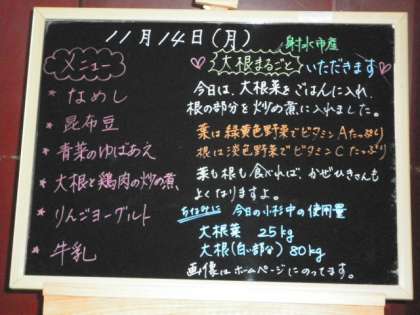 11月14日(月)
メニュー
* なめし
* 昆布豆
* 青菜のゆばあえ
* 大根と鶏肉の炒め煮
* りんごヨーグルト
* 牛乳
射水市産
♡大根まるごと いただきます♡
今日は、大根菜をごはんに入れ、
根の部分を炒め煮に入れました。
葉は緑黄色野菜でビタミンAたっぷり
根は淡色野菜でビタミンCたっぷり
葉も根も食べれば、かぜひきさんも
よくなりますよ。
ちなみに 今日の小杉中の使用量
大根葉 25kg
大根(白い部分) 80kg
画像はホームページにのってます。